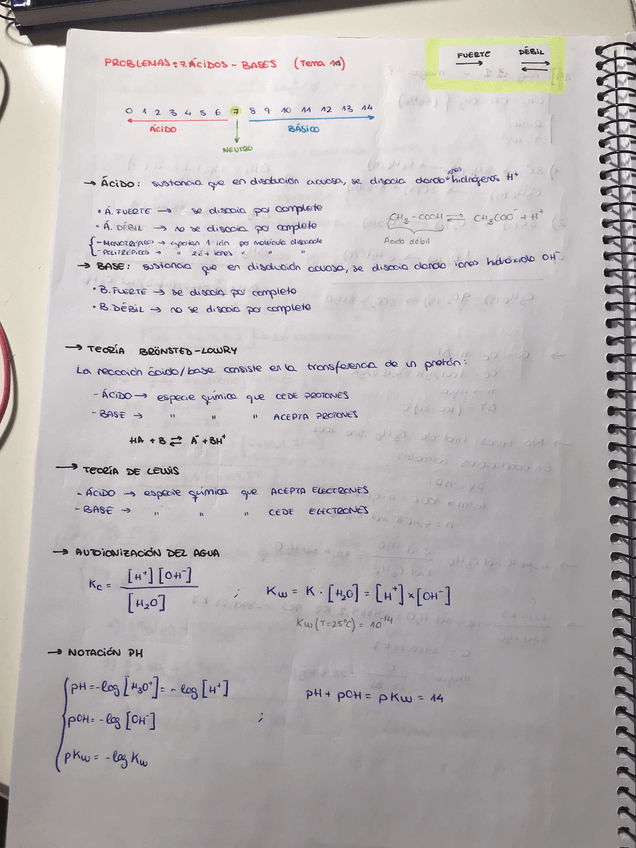 PROBLEMAS: 7. ÁCIDOS - BASES (Tema 10)
FUERTE → DÉBIL ⇌
0 1 2 3 4 5 6 7 8 9 10 11 12 13 14
ÁCIDO BÁSICO
NEUTRO
→ ÁCIDO: sustancia que en disolución acuosa, se disocia dando iones hidrógenos H⁺
• Á. FUERTE → se disocia por completo
• Á. DÉBIL → no se disocia por completo
CH₃-COOH ⇌ CH₃COO⁻ + H⁺
Ácido débil
- MONOPRÓTICO → aportan 1 ión por molécula disociada
- POLIPRÓTICOS → " 2 ó + iones " "
→ BASE: sustancia que en disolución acuosa, se disocia dando iones hidróxido OH⁻
• B. FUERTE → se disocia por completo
• B. DÉBIL → no se disocia por completo
→ TEORÍA BRÖNSTED-LOWRY
La reacción ácido/base consiste en la transferencia de un protón:
- ÁCIDO → especie química que CEDE PROTONES
- BASE → " " " ACEPTA PROTONES
HA + B ⇌ A⁻ + BH⁺
→ TEORÍA DE LEWIS
- ÁCIDO → especie química que ACEPTA ELECTRONES
- BASE → " " " CEDE ELECTRONES
→ AUTOIONIZACIÓN DEL AGUA
Kc = [H⁺][OH⁻] / [H₂O] ; Kw = K · [H₂O] = [H⁺]×[OH⁻]
Kw (T=25°C) = 10⁻¹⁴
→ NOTACIÓN PH
pH = -log [H₃O⁺] = -log [H⁺]
pOH = -log [OH⁻] ; pH + pOH = pKw = 14
pKw = -log Kw